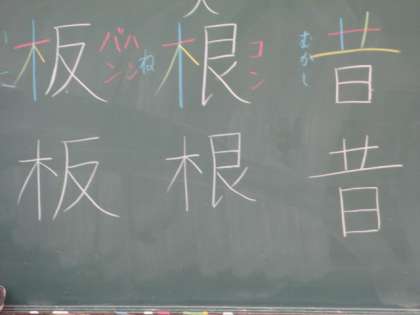 板 ハン バン
根 ね コン
昔 むかし
板 根 昔